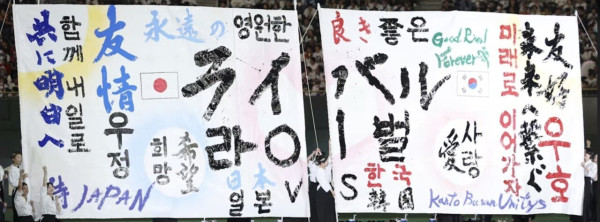 共に明日へ
함께 내일로
友情 우정
侍 JAPAN
永遠の 영원한
良き 좋은
ライバル
라이벌
VS
희망
希望
日本
일본
한국
韓国
사랑
愛
Good Rival
Forever
미래로 이어가자
未来へ繋ぐ
友好 우호
Kanto Busan Unitys